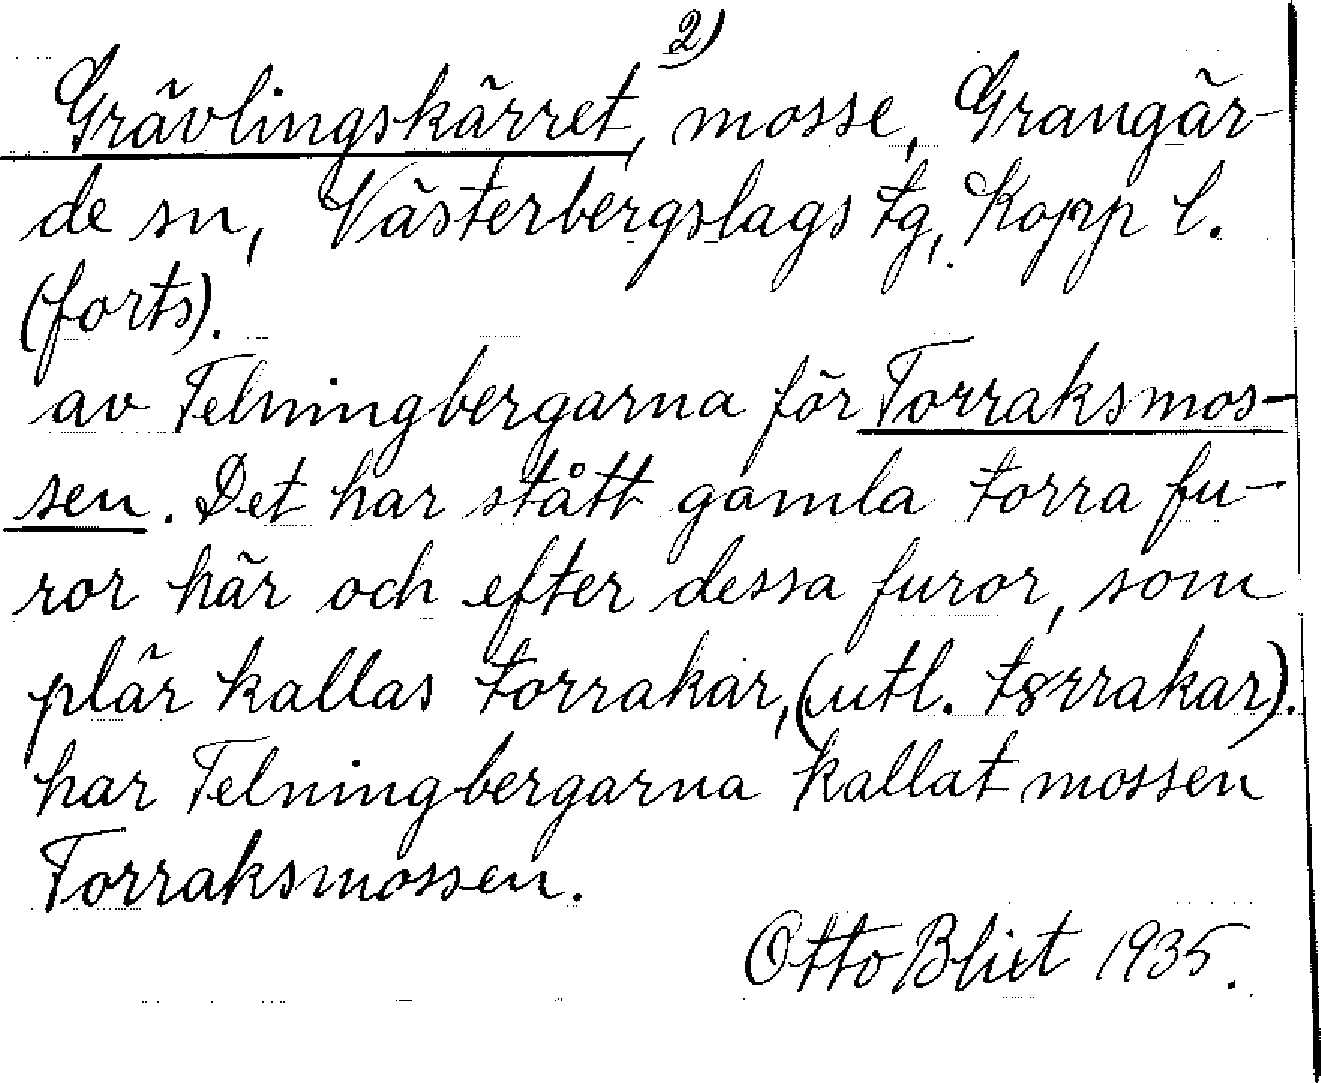 2)
Grävlingskärret, mosse, Grangär-
de sn, Västerbergslags tg, Kopp l.
(forts).
av Telningbergarna för Torraksmos-
sen. Det har stått gamla torra fu-
ror här och efter dessa furor, som
plär kallas torrakar, (utl. tɤrrakar).
har Telningbergarna kallat mossen
Torraksmossen.
Otto Blixt 1935.